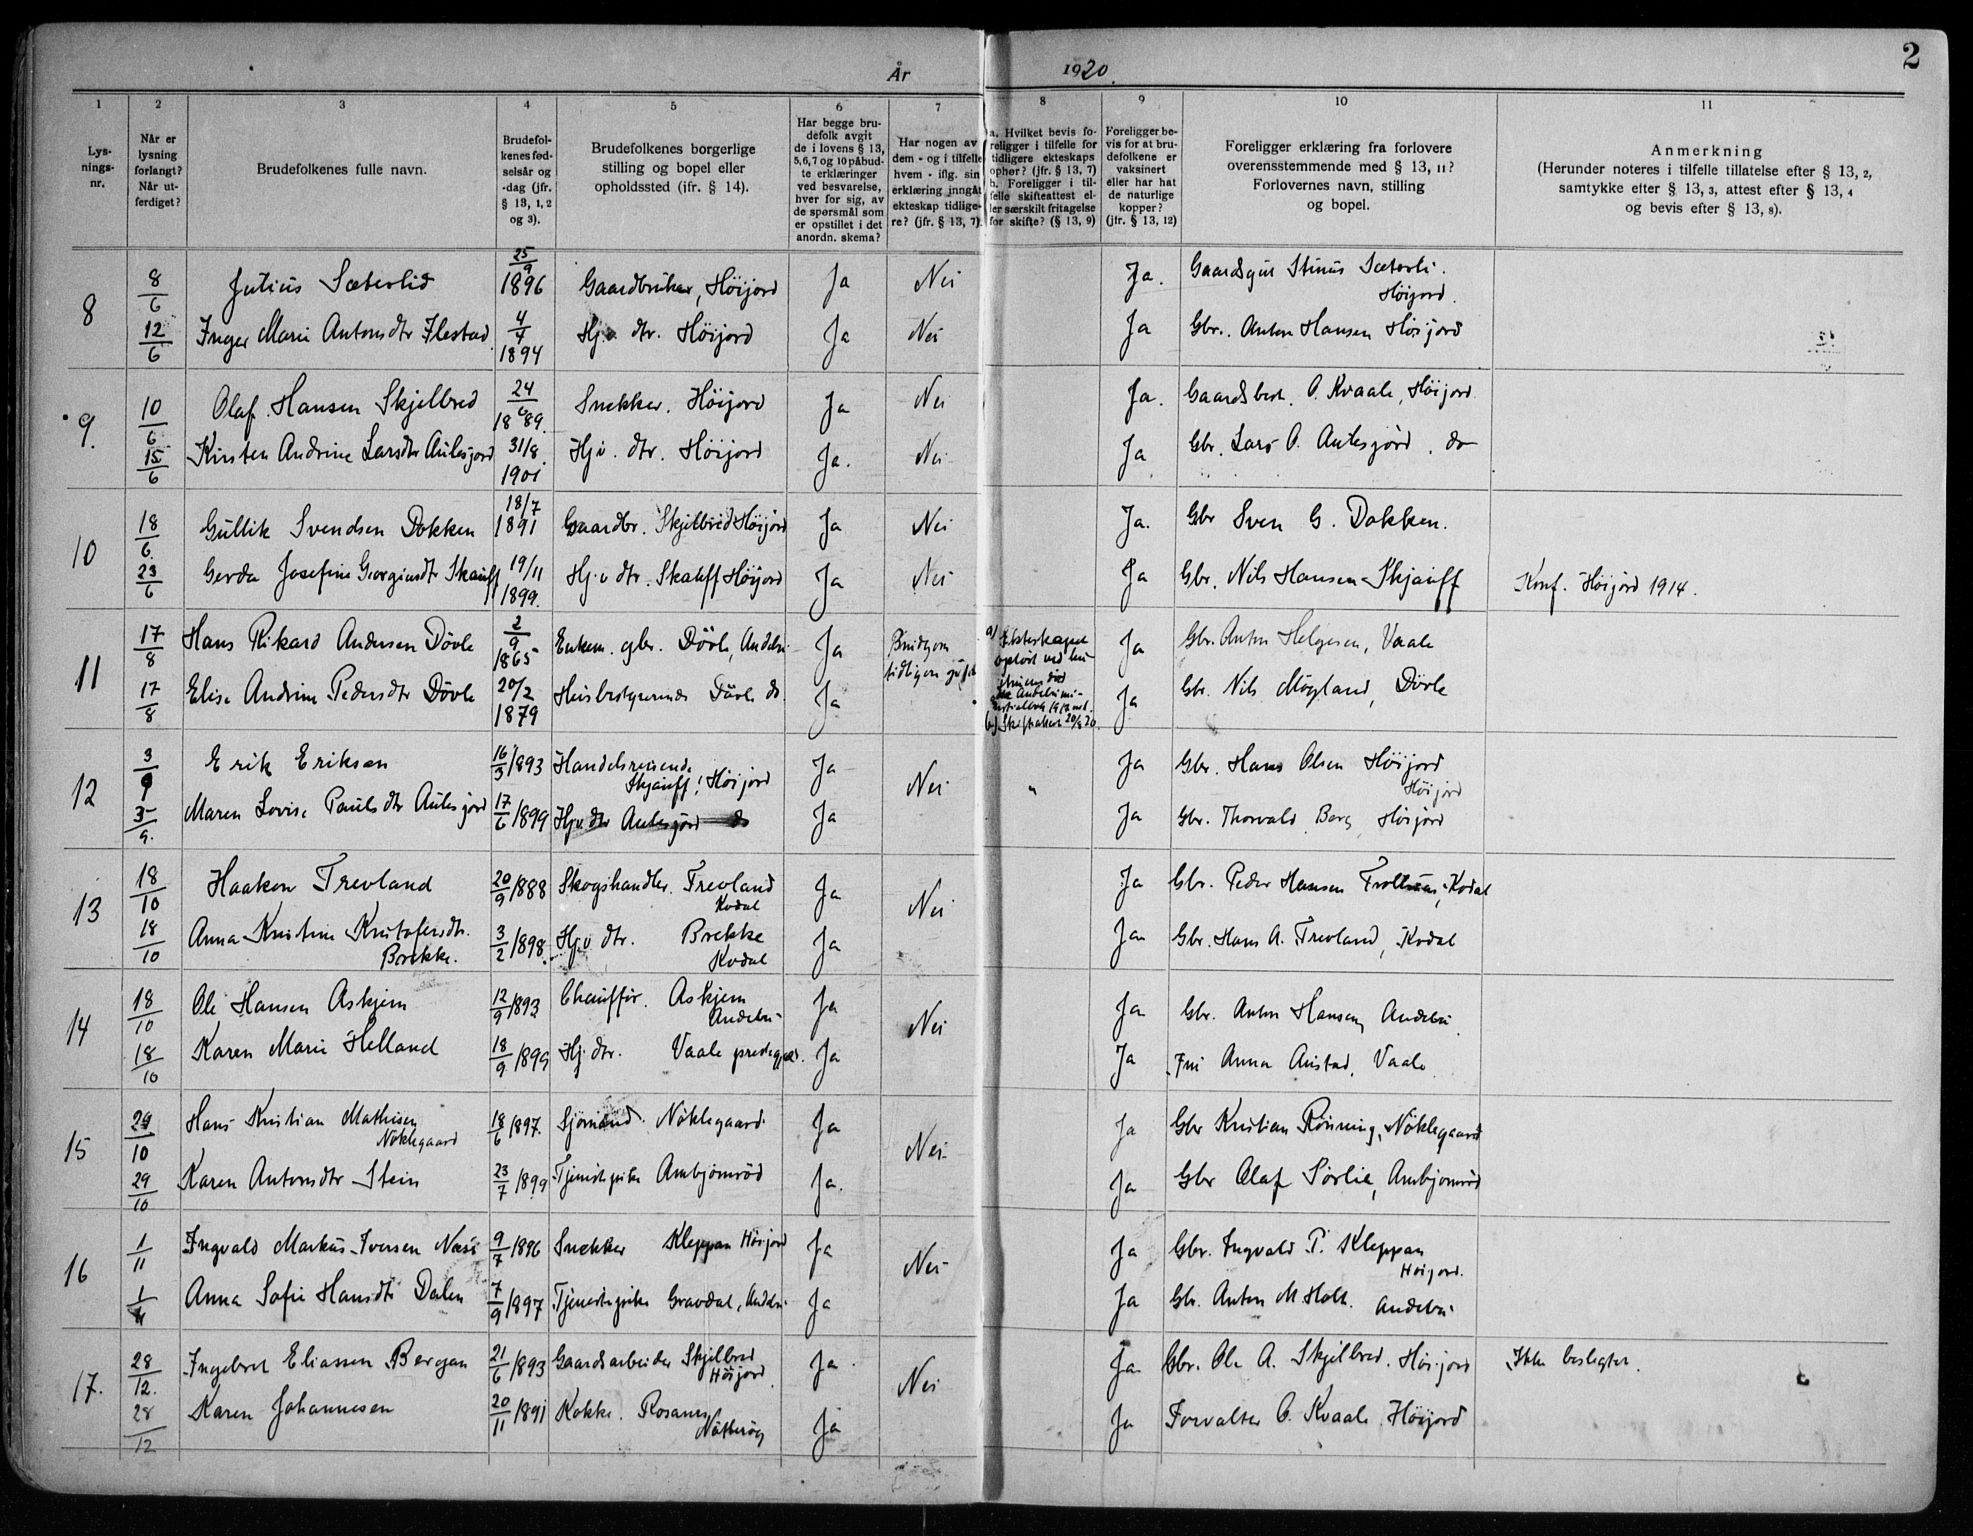 2
År 1920.
1 2 3 4 5 6 7 8 9 10 11
Lys-
nings-
nr.
Når er
lysning
forlangt?
Når ut-
ferdiget?
Brudefolkenes fulle navn.
Brudefol-
kenes fød-
selsår og
-dag (jfr.
§ 13, 1, 2
og 3).
Brudefolkenes borgerlige
stilling og bopel eller
opholdssted (jfr. § 14).
Har begge bru-
defolk avgit
de i lovens § 13,
5, 6, 7 og 10 påbud-
te erklæringer
ved besvarelse,
hver for sig, av
de spørsmål som
er opstillet i det
anordn. skema?
Har nogen av
dem - og i tilfelle
hvem - iflg. sin
erklæring inngått
ekteskap tidlige-
re? (jfr. § 13, 7).
a. Hvilket bevis fo-
religger i tilfelle for
tidligere ekteskaps
ophør? (jfr. § 13, 7)
b. Foreligger i til-
felle skifteattest el-
ler særskilt fritagelse
for skifte? (§ 13, 9)
Foreligger be-
vis for at bru-
defolkene er
vaksinert
eller har hat
de naturlige
kopper?
(jfr. § 13, 12)
Foreligger erklæring fra forlovere
overensstemmende med § 13, 11?
Forlovernes navn, stilling
og bopel.
Anmerkning
(Herunder noteres i tilfelle tillatelse efter § 13, 2,
samtykke efter § 13, 3, attest efter § 13, 4
og bevis efter § 13, 8).
8 8/6 Julius Sæterlid 25/9 1896 Gaardbruker, Höijord Ja Nei Ja. Gaardsgut Stinus Sæterli. Höijord.
12/6 Inger Marie Antonsdtr Ilestad 4/4 1894 Hj.v. dtr. Höijord Ja Nei Ja Gbr. Anton Hansen Höijord
9. 10/6 Olaf Hansen Skjelbred 24/6 1889. Snekker. Höijord Ja Nei Ja. Gaardsbest. O. Kvaale, Höijord
15/6 Kirsten Andrine Larsdtr Aulesjord 31/8 1901 Hj.v. dtr. Höijord Ja. Nei Ja Gbr. Lars A. Aulesjord. do
10 18/6. Gullik Svendsen Dokken 18/7 1891 Gaardbr. Skjelbred Höijord Ja Nei Ja. Gbr Sven G. Dokken.
23/6 Gerda Josefine Georginsdtr Skauff 19/11 1899. Hj.v dtr. Skauff Höijord Ja Nei Ja Gbr. Nils Hansen Skjauff Konf. Höijord 1914.
11 17/8 Hans Rikard Andersen Dövle 2/9 1865 Enkem. gbr. Dövle, Andebu Ja Brudgom tidligere gift a) Ekteskapet opløst ved hu- struens død Ja Gbr. Anton Helgesen, Vaale
17/8 Elise Andrine Pedersdtr Dövle 20/2 1879 Husbestyrerinde Dövle do Ja b) Skifteattest 20/8 20. Ja Gbr. Nils Møgland, Dövle
12 3/9 Erik Eriksen 16/3 1893 Handelsreisende Skjauff, Höijord Ja Nei " Ja Gbr. Hans Olsen Höijord
3/9. Maren Lovise Paulsdtr Aulesjord 17/6 1899 Hj.v. dtr Aulesjord do Ja Ja Gbr. Thorvald Berg, Höijord Höijord
13 18/10 Haakon Trevland 20/9 1888 Skogshandler. Trevland Kodal Ja Nei Ja Gbr. Peder Hansen Trollsaas, Kodal
18/10 Anna Kristine Kristofersdtr. Brekke. 3/2 1898. Hj.v dtr. Brekke Kodal Ja Ja Gbr. Hans A. Trevland, Kodal
14 18/10 Ole Hansen Askjem 12/9 1893 Chauffør. Askjem Andebu Ja Nei Ja Gbr. Anton Hansen, Andebu.
18/10 Karen Marie Helland 18/9 1899 Hj. dtr. Vaale prestegaard. Ja Ja Fru Anna Austad, Vaale
15 29/10 Hans Kristian Mathisen Nöklegaard 18/6 1897. Sjømand. Nöklegaard. Ja Nei Ja Gbr Kristian Rönning, Nöklegaard
29/10 Karen Antonsdtr Stein 23/7 1899 Tjenestepike Ambjornröd Ja. Ja Gbr Olaf Sørlie, Ambjornröd
16 1/11 Ingvald Markus Iversen Næss 9/7 1896 Snekker Kleppan Höijord Ja Nei Ja Gbr. Ingvald P. Kleppan Höijord.
1/11 Anna Sofie Hansdtr Dalen 7/9 1897 Tjenestepike Gravdal, Andebu Ja Ja Gbr. Anton M Holt. Andebu
17. 28/12. Ingebret Eliassen Bergan 21/6 1893 Gaardsarbeider Skjelbred Höijord Ja Nei Ja Gbr. Ole A. Skjelbred. Höijord Ikke beslegtet.
28/12 Karen Johannesen 20/11 1891 Kokke. Rosanes Nötteröy Ja Ja Forvalter O. Kvaale Höijord